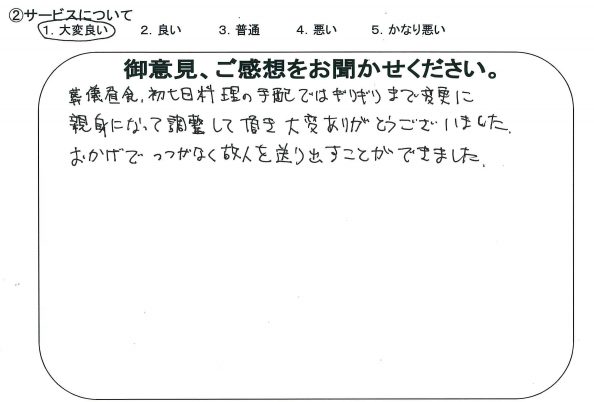 ②サービスについて
1. 大変良い 2. 良い 3. 普通 4. 悪い 5. かなり悪い
御意見、ご感想をお聞かせください。
葬儀昼食、初七日料理の手配ではぎりぎりまで変更に
親身になって調整して頂き大変ありがとうございました。
おかげでつつがなく故人を送り出すことができました。